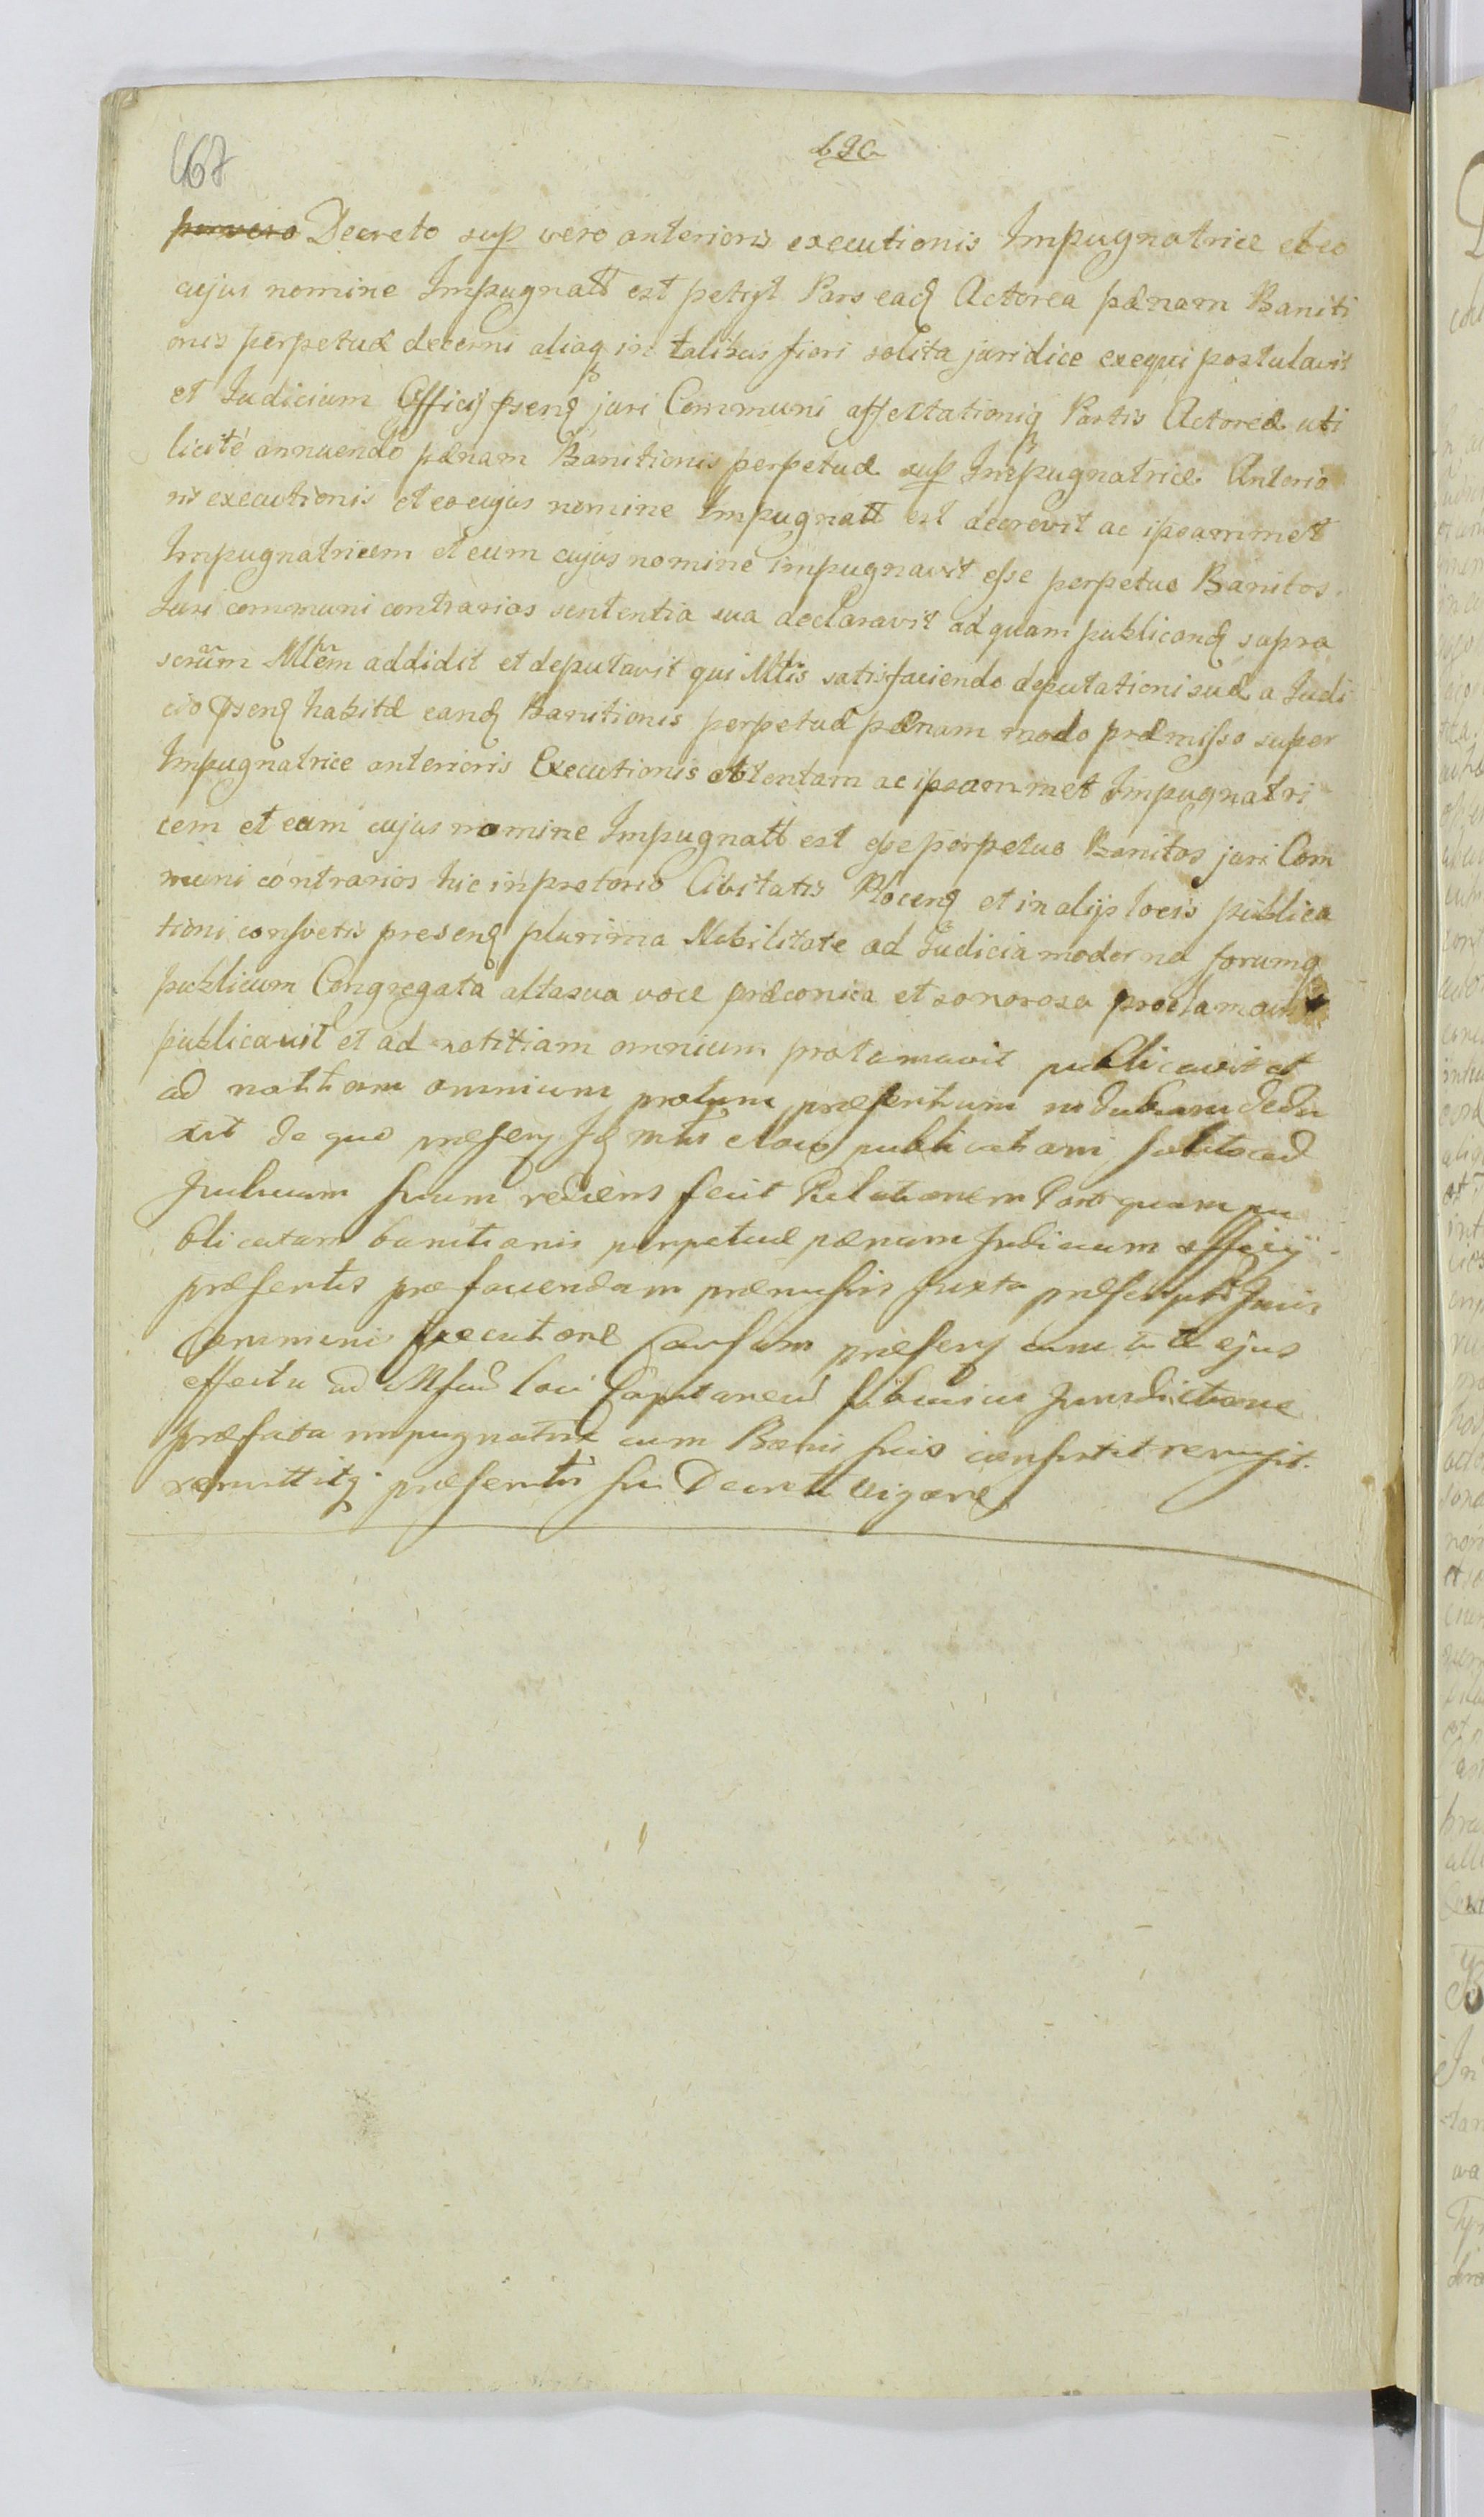 467
Decreto sup vero anterioris executionis Impugnatrice et eo
cujus nomine Impugnatt est petijt Pars eadq Actorea pænam Baniti
onis perpetuæ decerni aliaq in talibus fieri solita juridice exequi postulavit
et Judicium Officij psenq juri Communi affectationiq Partis Actoreæ uti
licité annuendo pænam Banitionis perpetuæ sup Impugnatrice Anterio
ris executionis et eo cujus nomine Impugnatt est decrevit ac ipsammet
Impugnatricem et eum cujus nomine impugnavit esse perpetuo Banitos
Juri communi contrarios sententia sua declaravit ad quam publicandq supra
scrũm Mlem addidit et deputavit qui Mtlis satisfaciendo deputationi suæ a Judi
cio psenq habitæ eandq Banitionis perpetuæ pænam modo præmisso super
Impugnatrice anterioris Executionis obtentam ac ipsammet Impugnatri
cem et eum cujus nomine Impugnatt est esse perpetuo Banitos juri Com
muni contrarios hic in pretorio Civitatis Plocenq et in alijs locis publica
tioni consvetis presenq plurima Nobilitate ad Judicia moderna forumq
publicum Congregata alta sua voce præconica et sonorosa proclamavit
publicavit et ad notitiam omnium proclamavit publicavit et
ad notitiam omnium præsentium dedu
xit de quo præsenq publicationi ad
Judicium suum rediens fecit Relationem Post quam pu
blicatam banitionis perpetuæ pænam Judicium officij
præsentis præmissis juxta præscripta Juris
Communis Executione Causam præsenq cum toto ejus
effectu ad loci Capitaneum Jurisdictione
præfata impugnatrix cum Bonis suis consistit remisit
remittitq præsentis sui Decreti vigore